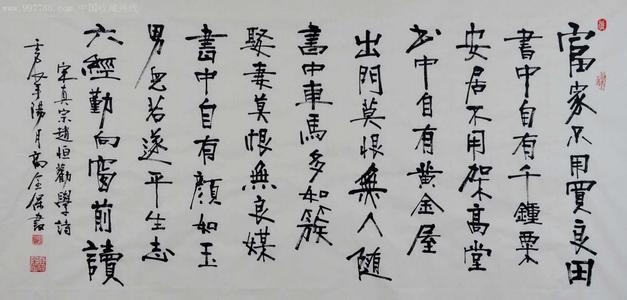 富家不用買良田
書中自有千鍾粟
安居不用架高堂
书中自有黄金屋
出門莫恨無人随
書中車馬多如簇
娶妻莫恨無良媒
書中自有顏如玉
男兒若遂平生志
六經勤向窗前讀
宋真宗趙恒勸學詩
陽月高金
www.997788.com 中国收藏热线